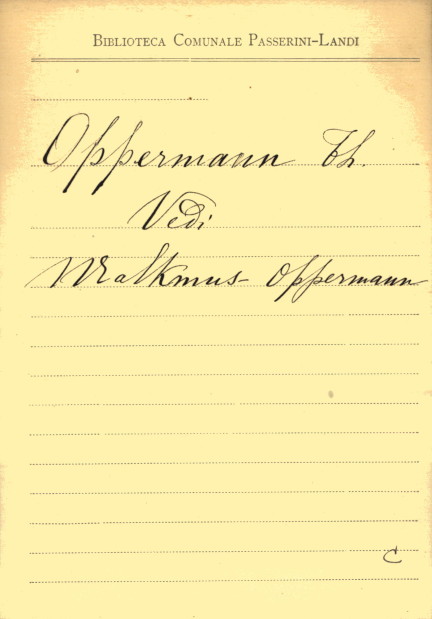 Biblioteca Comunale Passerini-Landi
Oppermann Th.
Vedi
Malkmus-Oppermann
C